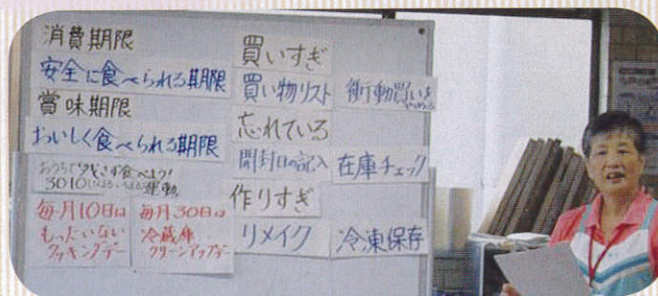 消費期限
安全に食べられる期限
賞味期限
おいしく食べられる期限
おうちで残さず食べよう!
3010運動
毎月10日は
もったいない
クッキングデー
毎月30日は
冷蔵庫
クリーンアップデー
買いすぎ
買い物リスト
衝動買いを
忘れている
開封日の記入
在庫チェック
作りすぎ
リメイク
冷凍保存